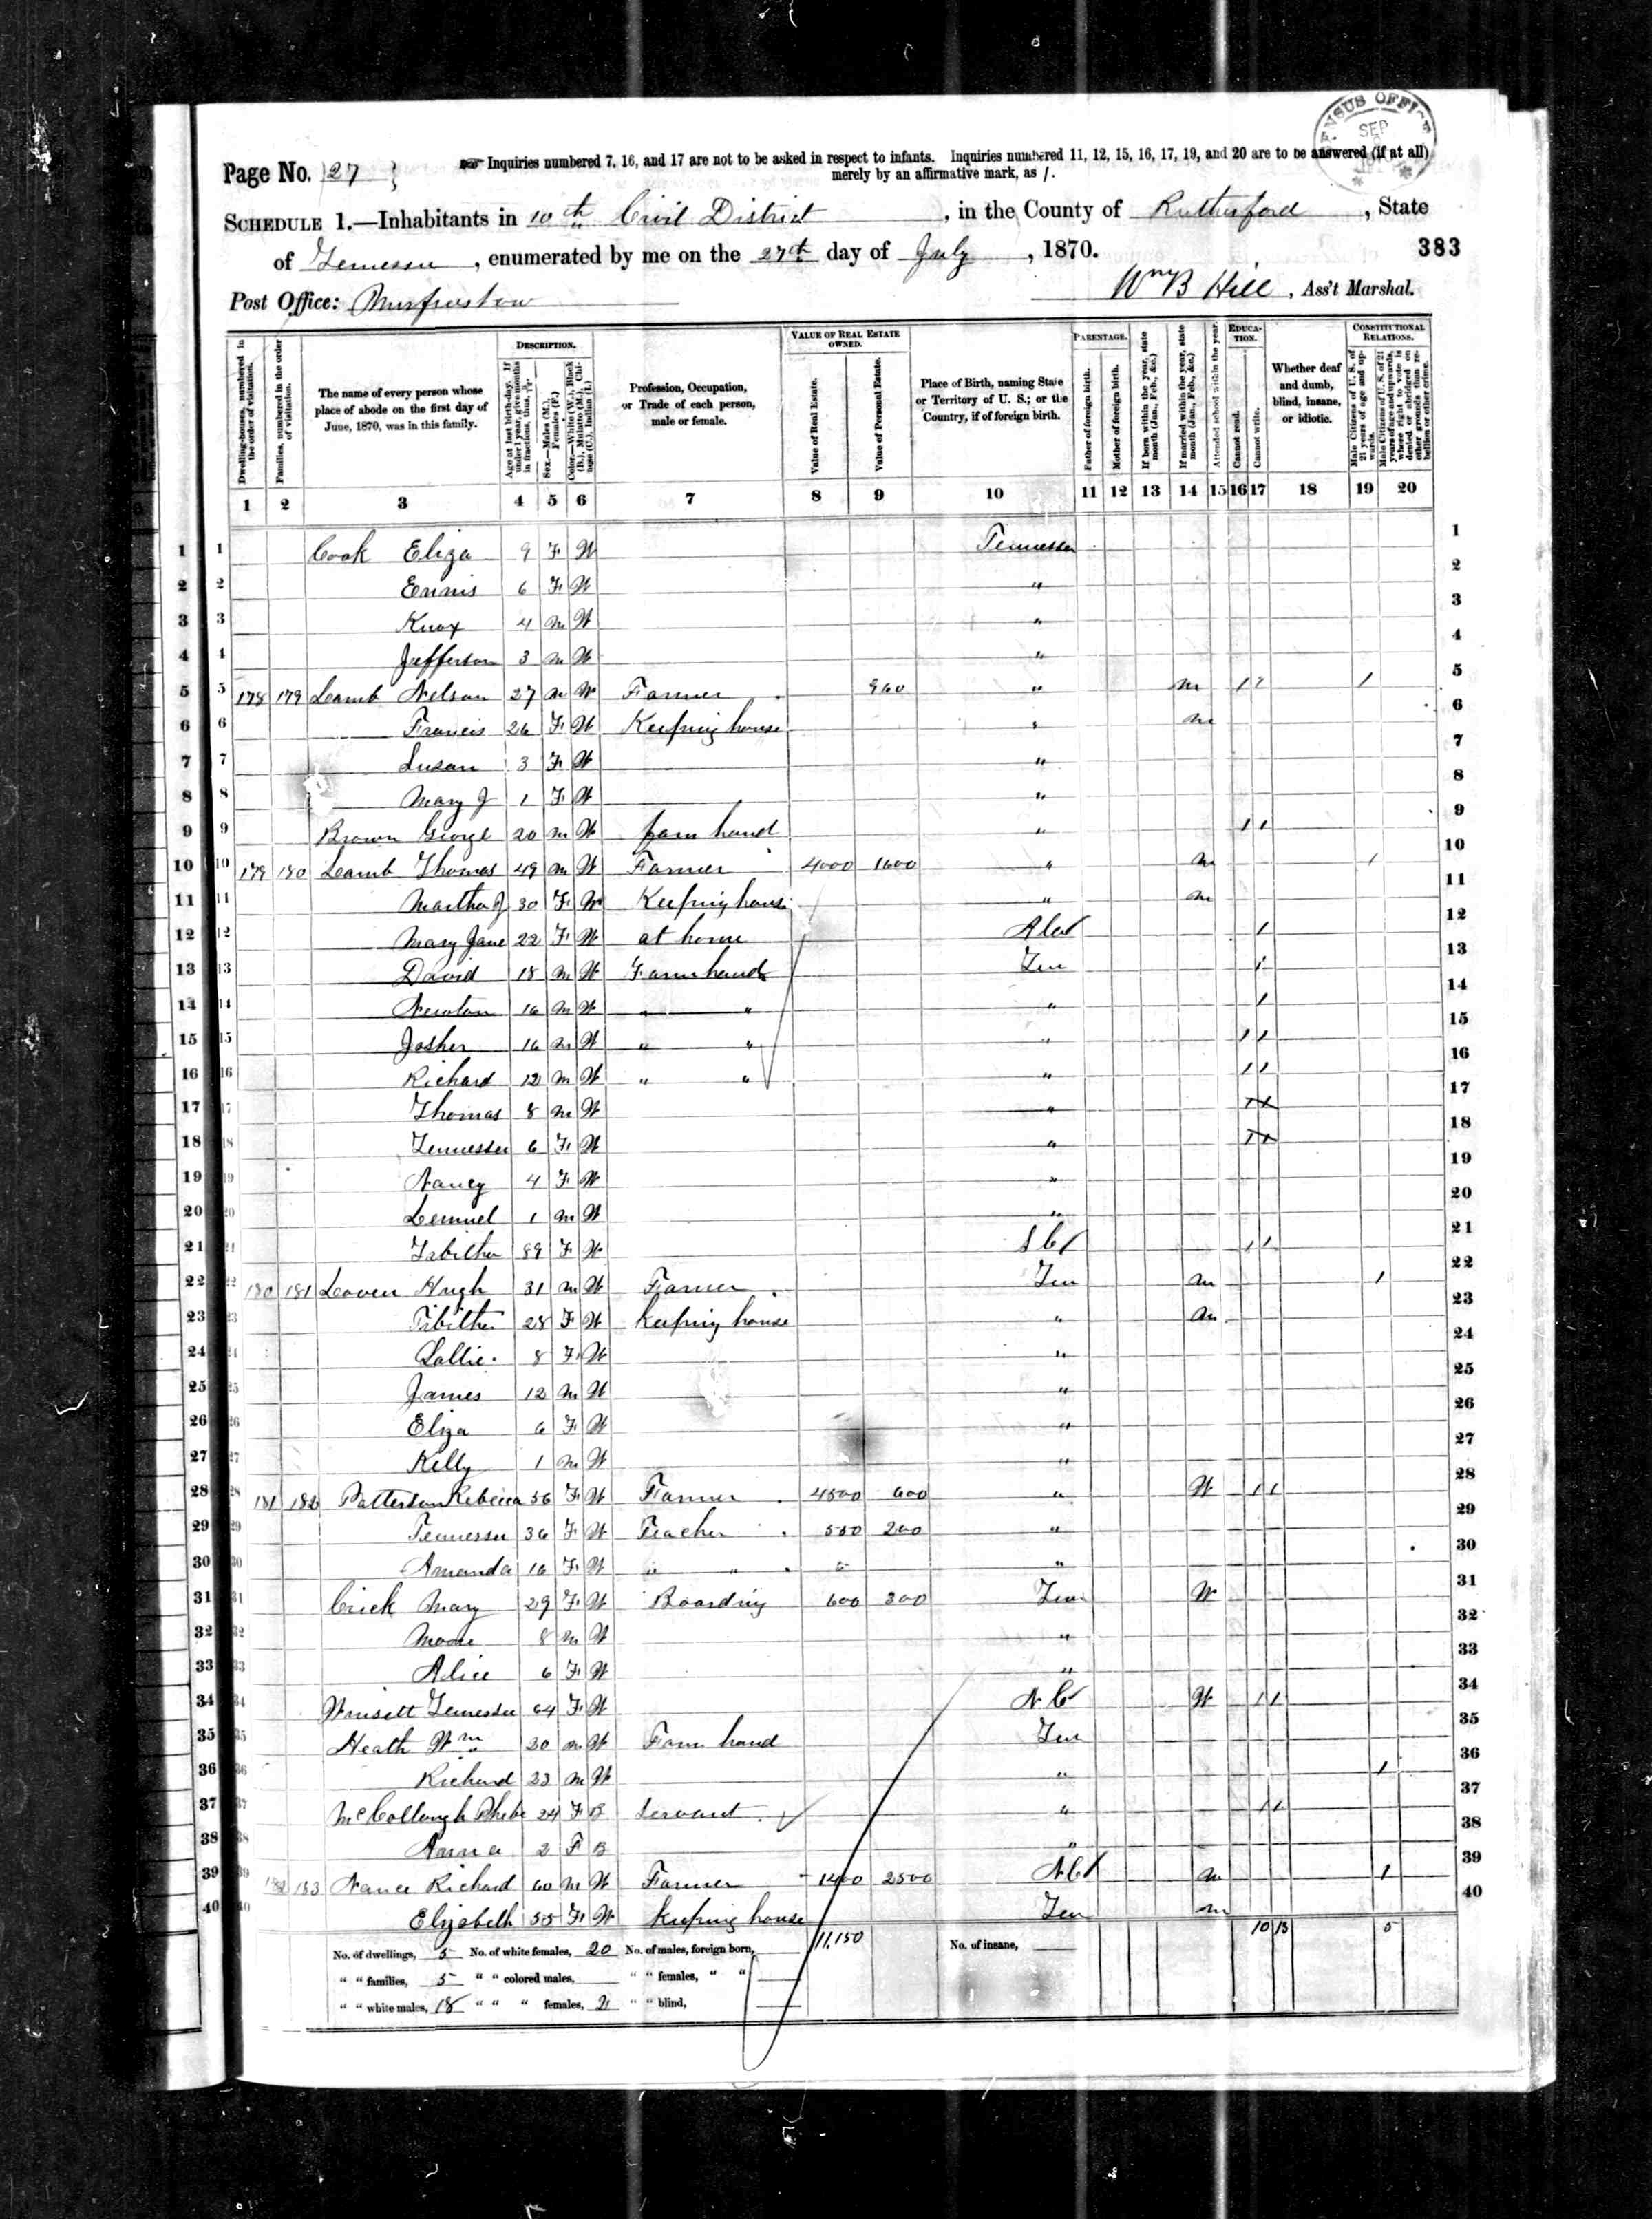 CENSUS OFFICE SEP
Page No. 27
Inquiries numbered 7, 16, and 17 are not to be asked in respect to infants. Inquiries numbered 11, 12, 15, 16, 17, 19, and 20 are to be answered (if at all)
merely by an affirmative mark, as /.
SCHEDULE 1.—Inhabitants in 10th Civil District, in the County of Rutherford, State
of Tennessee, enumerated by me on the 27th day of July, 1870.
383
Post Office: Murfreesboro
Wm B Hill, Ass't Marshal.
Dwelling-houses, numbered in the order of visitation.
Families, numbered in the order of visitation.
The name of every person whose place of abode on the first day of June, 1870, was in this family.
DESCRIPTION.
Age at last birth-day. If under 1 year, give months in fractions, thus,
Sex.—Males (M.), Females (F.)
Color.—White (W.), Black (B.), Mulatto (M.), Chinese (C.), Indian (I.)
Profession, Occupation, or Trade of each person, male or female.
VALUE OF REAL ESTATE OWNED.
Value of Real Estate.
Value of Personal Estate.
Place of Birth, naming State or Territory of U. S.; or the Country, if of foreign birth.
PARENTAGE.
Father of foreign birth.
Mother of foreign birth.
If born within the year, state month (Jan., Feb., &c.)
If married within the year, state month (Jan., Feb., &c.)
Attended school within the year.
EDUCATION.
Cannot read.
Cannot write.
Whether deaf and dumb, blind, insane, or idiotic.
CONSTITUTIONAL RELATIONS.
Male Citizens of U. S. of 21 years of age and upwards.
Male Citizens of U. S. of 21 years of age and upwards, whose right to vote is denied or abridged on other grounds than rebellion or other crime.
1 2 3 4 5 6 7 8 9 10 11 12 13 14 15 16 17 18 19 20
1 Cook Eliza 9 F W Tennessee
2 Ennis 6 F W "
3 Knox 4 m W "
4 Jefferson 3 m W "
5 178 179 Lamb Nelson 27 m W Farmer 960 " m 1 1 1
6 Francis 26 F W Keeping house " m
7 Susan 3 F W "
8 Mary J 1 F W "
9 Brown George 20 m W farm hand " 1 1
10 179 180 Lamb Thomas 49 m W Farmer 4000 1600 " m 1
11 Martha J 30 F W Keeping house " m
12 Mary Jane 22 F W at home Ala 1
13 David 18 m W Farm hand Ten 1
14 Newton 16 m W " " " 1
15 Josher 16 m W " " " 1 1
16 Richard 12 m W " " " 1 1
17 Thomas 8 m W "
18 Tennessee 6 F W "
19 Nancy 4 F W "
20 Lemuel 1 m W "
21 Tabitha 89 F W S C 1 1
22 180 181 Hugh 31 m W Farmer Ten m 1
23 Tibitha 28 F W keeping house " m
24 Sallie 8 F W "
25 James 12 m W "
26 Eliza 6 F W "
27 Kelly 1 m W "
28 181 182 Patterson Rebecca 56 F W Farmer 4500 600 " W 1 1
29 Tennessee 36 F W Teacher 550 200 "
30 Amanda 16 F W " " "
31 Crick Mary 29 F W Boarding 600 300 Ten W
32 Moore 8 m W "
33 Alice 6 F W "
34 Tennessee 64 F W N C W 1 1
35 Heath Wm 20 m W Farm hand Ten
36 Richard 23 m W " 1
37 McCollough Phebe 24 F B Servant " 1 1
38 Anna 2 F B "
39 182 183 Nance Richard 60 m W Farmer 1400 2500 N C m 1
40 Elizabeth 55 F W keeping house Ten m
No. of dwellings, 5 No. of white females, 20 No. of males, foreign born, 11,150 No. of insane, 10 13 5
" " families, 5 " " colored males, " " females, " "
" " white males, 18 " " " females, 2 " " blind,